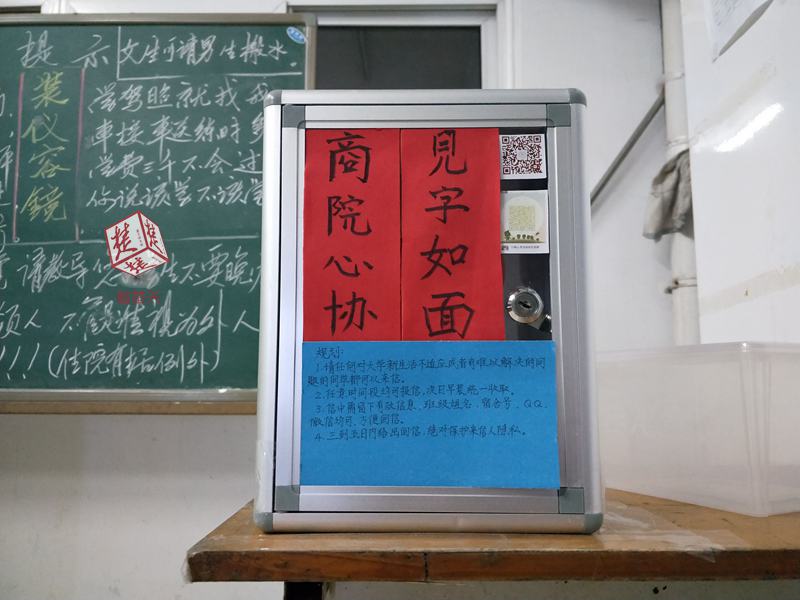 提示
女生可请男生搬水
装仪容镜
学驾照就找我
车接车送练时
学费三千不会过
你说该学不该学
请教导
不要晚
人
外人
!!!(住院有
例外)
楚楚
商院心协
見字如面
规则:
1.请任何对大学新生活不适应或者有难以解决的问
题的同学都可以来信。
2.任意时间段均可投信,次日早晨统一收取。
3.信中需留下有效信息、班级姓名、宿舍号、QQ、
微信均可,方便回信。
4.三到五日内给出回信,绝对保护来信人隐私。